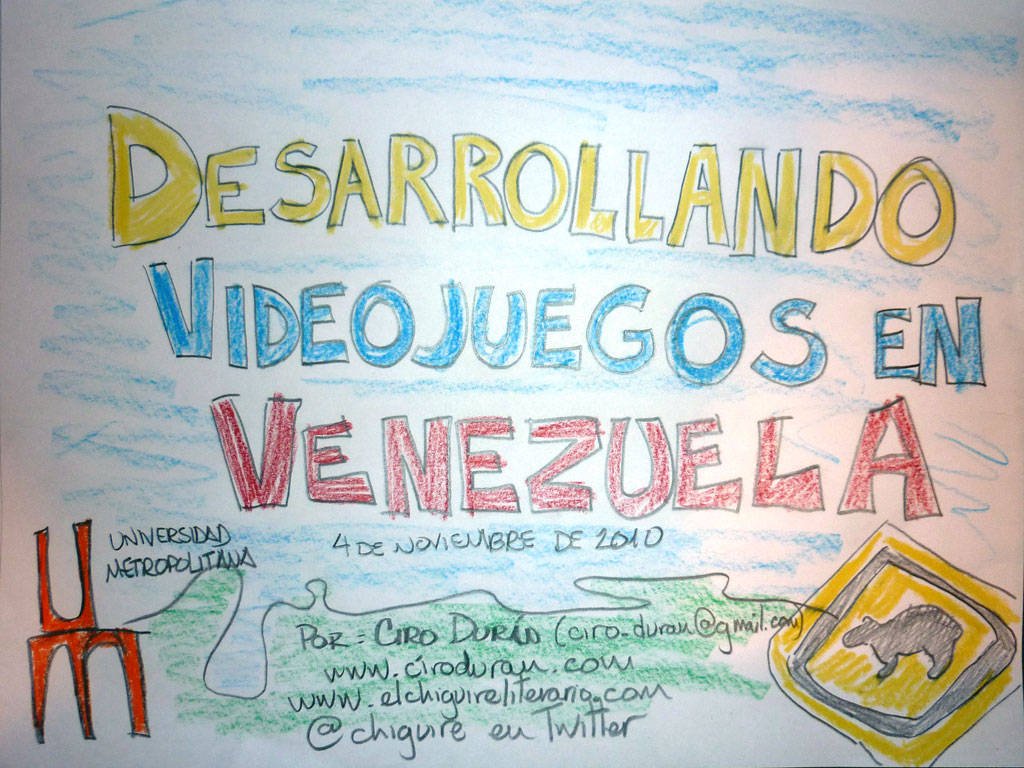 DESARROLLANDO
VIDEOJUEGOS EN
VENEZUELA
UM
UNIVERSIDAD
METROPOLITANA
4 DE NOVIEMBRE DE 2010
POR: CIRO DURÁN (ciro.duran@gmail.com)
www.ciroduran.com
www.elchiguireliterario.com
@chiguire en Twitter